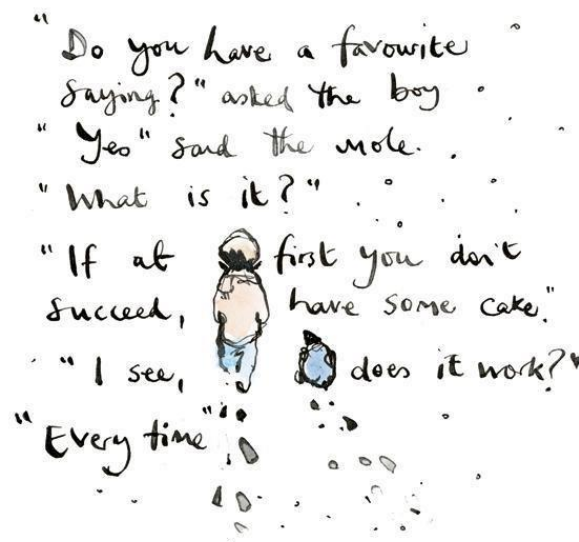 "Do you have a favourite
saying?" asked the boy
"Yes" said the mole.
"What is it?"
"If at first you don't
succeed, have some cake."
"I see, does it work?"
"Every time"